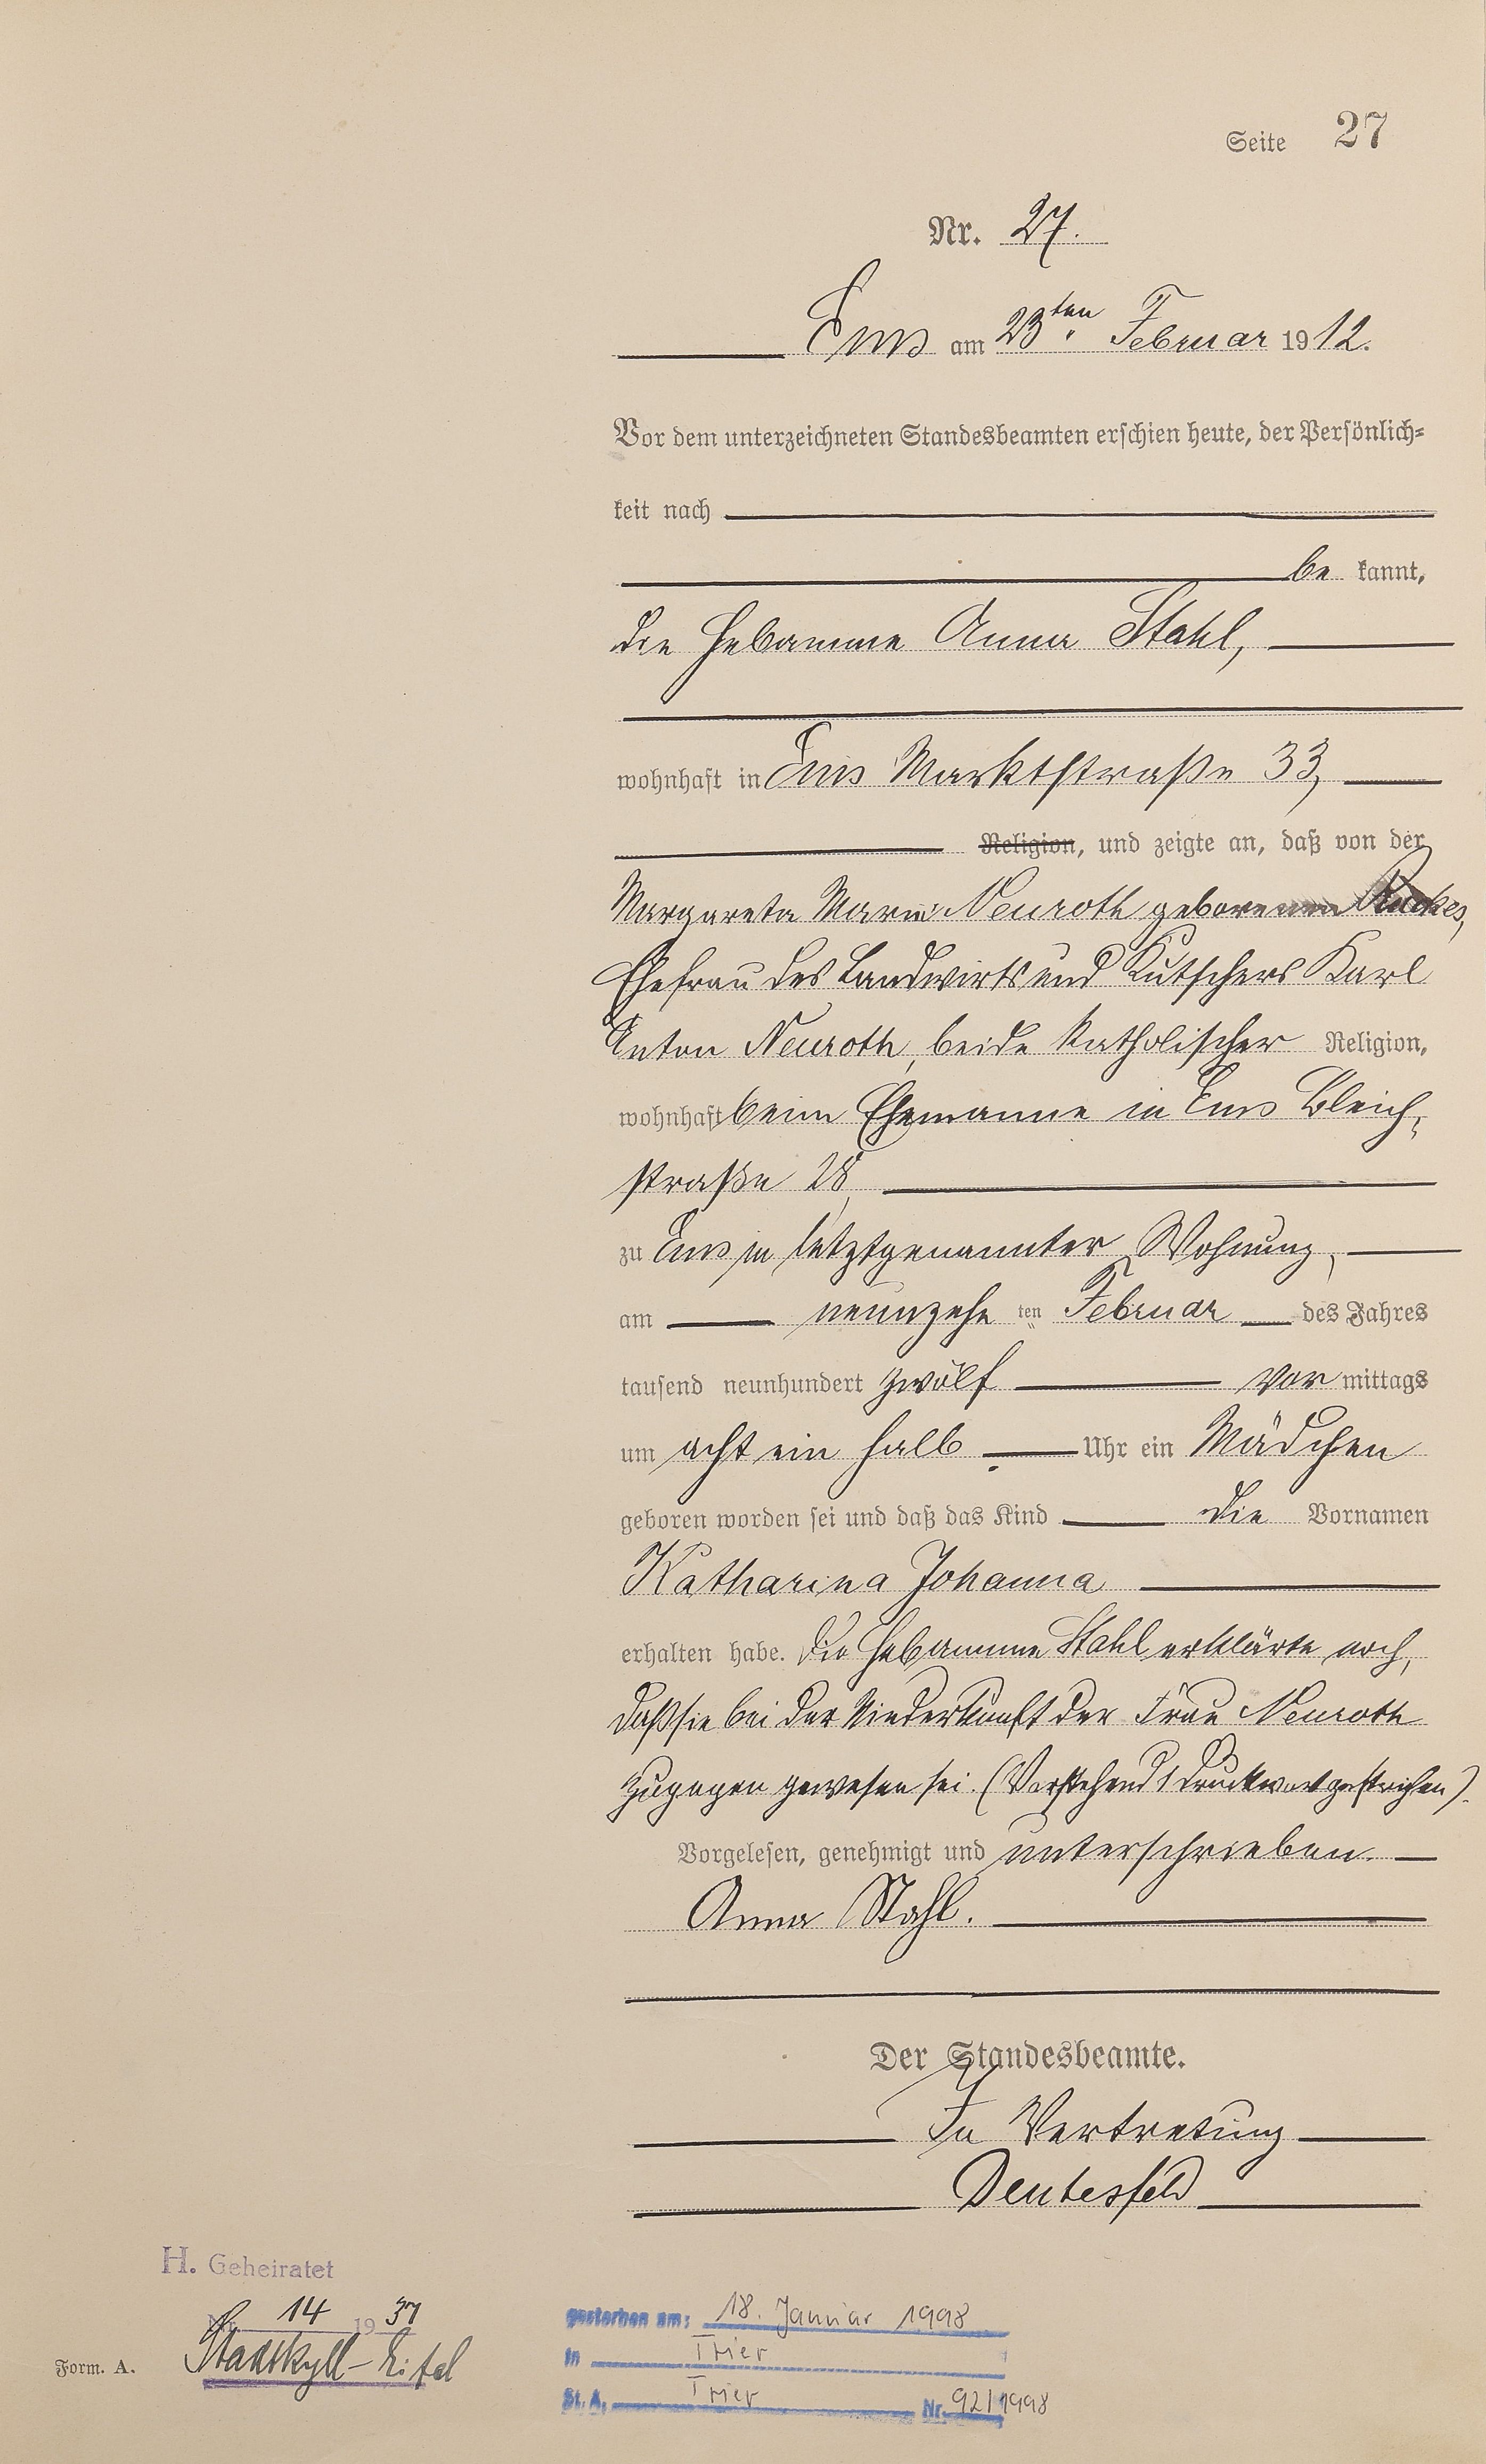 Seite 27
Nr. 27.
Ems am 23ten Februar 1912.
Vor dem unterzeichneten Standesbeamten erschien heute, der Persönlich-
keit nach
be kannt,
die Hebamme Anna Stahl,
wohnhaft in Ems Marktstraße 33,
Religion, und zeigte an, daß von der
Margareta Marie Neuroth geborenen
Ehefrau des Landwirts und Kutschers Karl
Anton Neuroth, beide katholischer Religion,
wohnhaft beim Ehemanne in Ems Bleich-
straße 28,
zu Ems in letztgenannter Wohnung,
am neunzehn ten Februar des Jahres
tausend neunhundert zwölf Vor mittags
um acht ein halb Uhr ein Mädchen
geboren worden sei und daß das Kind die Vornamen
Katharina Johanna
erhalten habe. Die Hebamme Stahl erklärte noch,
daß sie bei der Niederkunft der Frau Neuroth
zugegen gewesen sei. (Vorstehend 1 Druckwort gestrichen).
Vorgelesen, genehmigt und unterschrieben.
Anna Stahl.
Der Standesbeamte.
In Vertretung
H. Geheiratet
Nr. 14 1937
Stadtkyll-Eifel
Form. A.
gestorben am: 18. Januar 1998
in Trier
St. A. Trier Nr. 92/1998